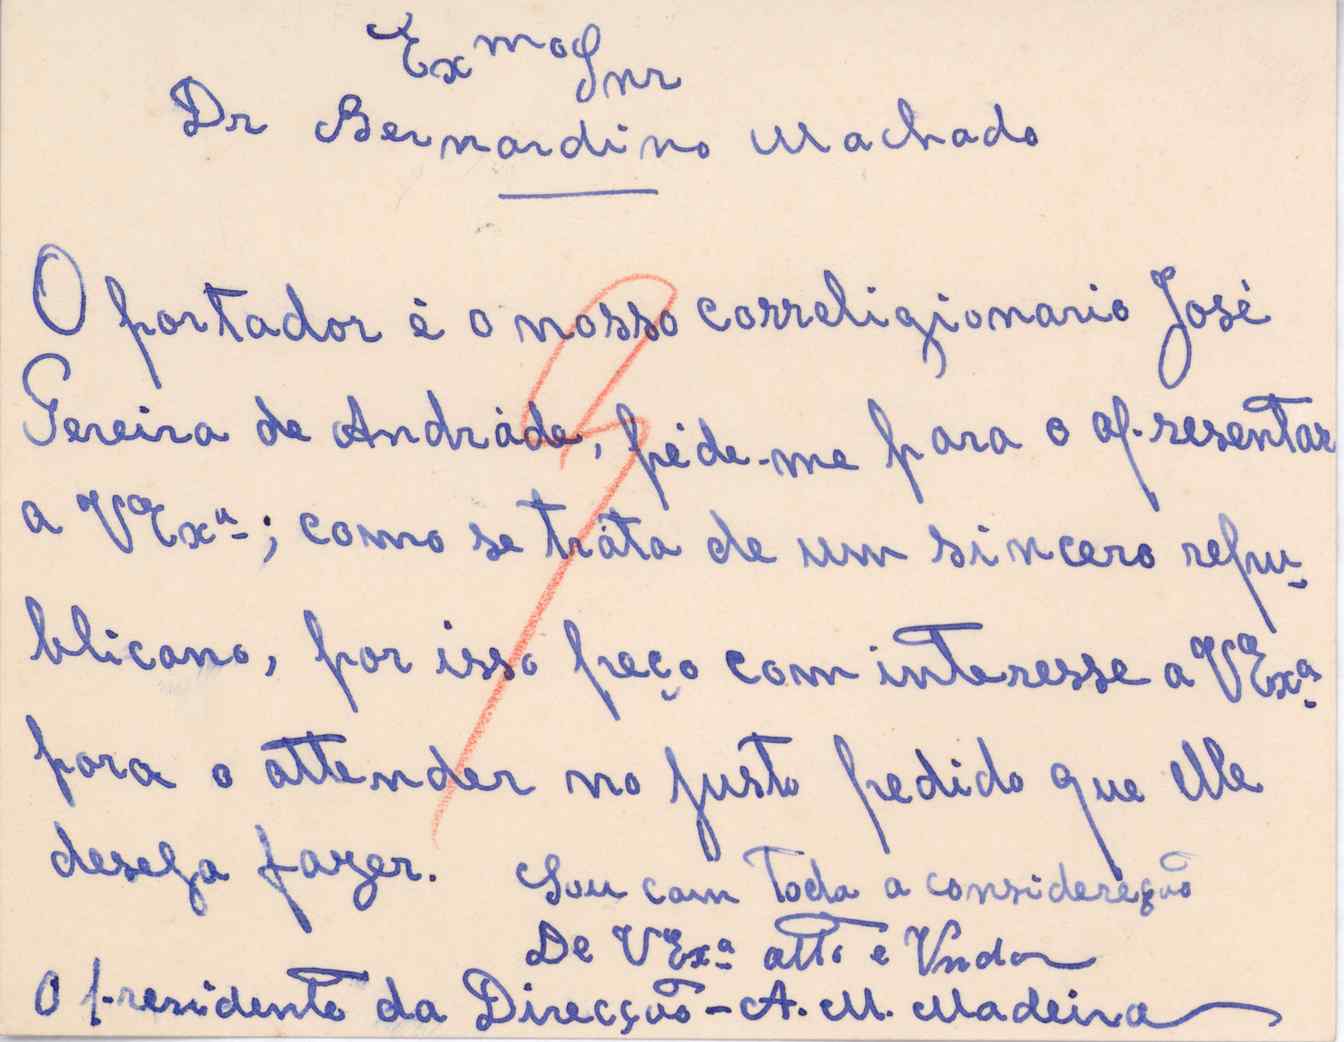 Exmo Snr
Dr Bernardino Machado
O portador é o nosso correligionario José
Pereira de Andráde, péde-me para o apresentar
a VExª; como se tráta de um sincero repu-
blicano, por isso peço com interesse a VExª
para o attender no justo pedido que elle
deseja fazer.
Sou com toda a consideração
De VExª attº e Vndor
O presidente da Direcção - A. M. Madeira